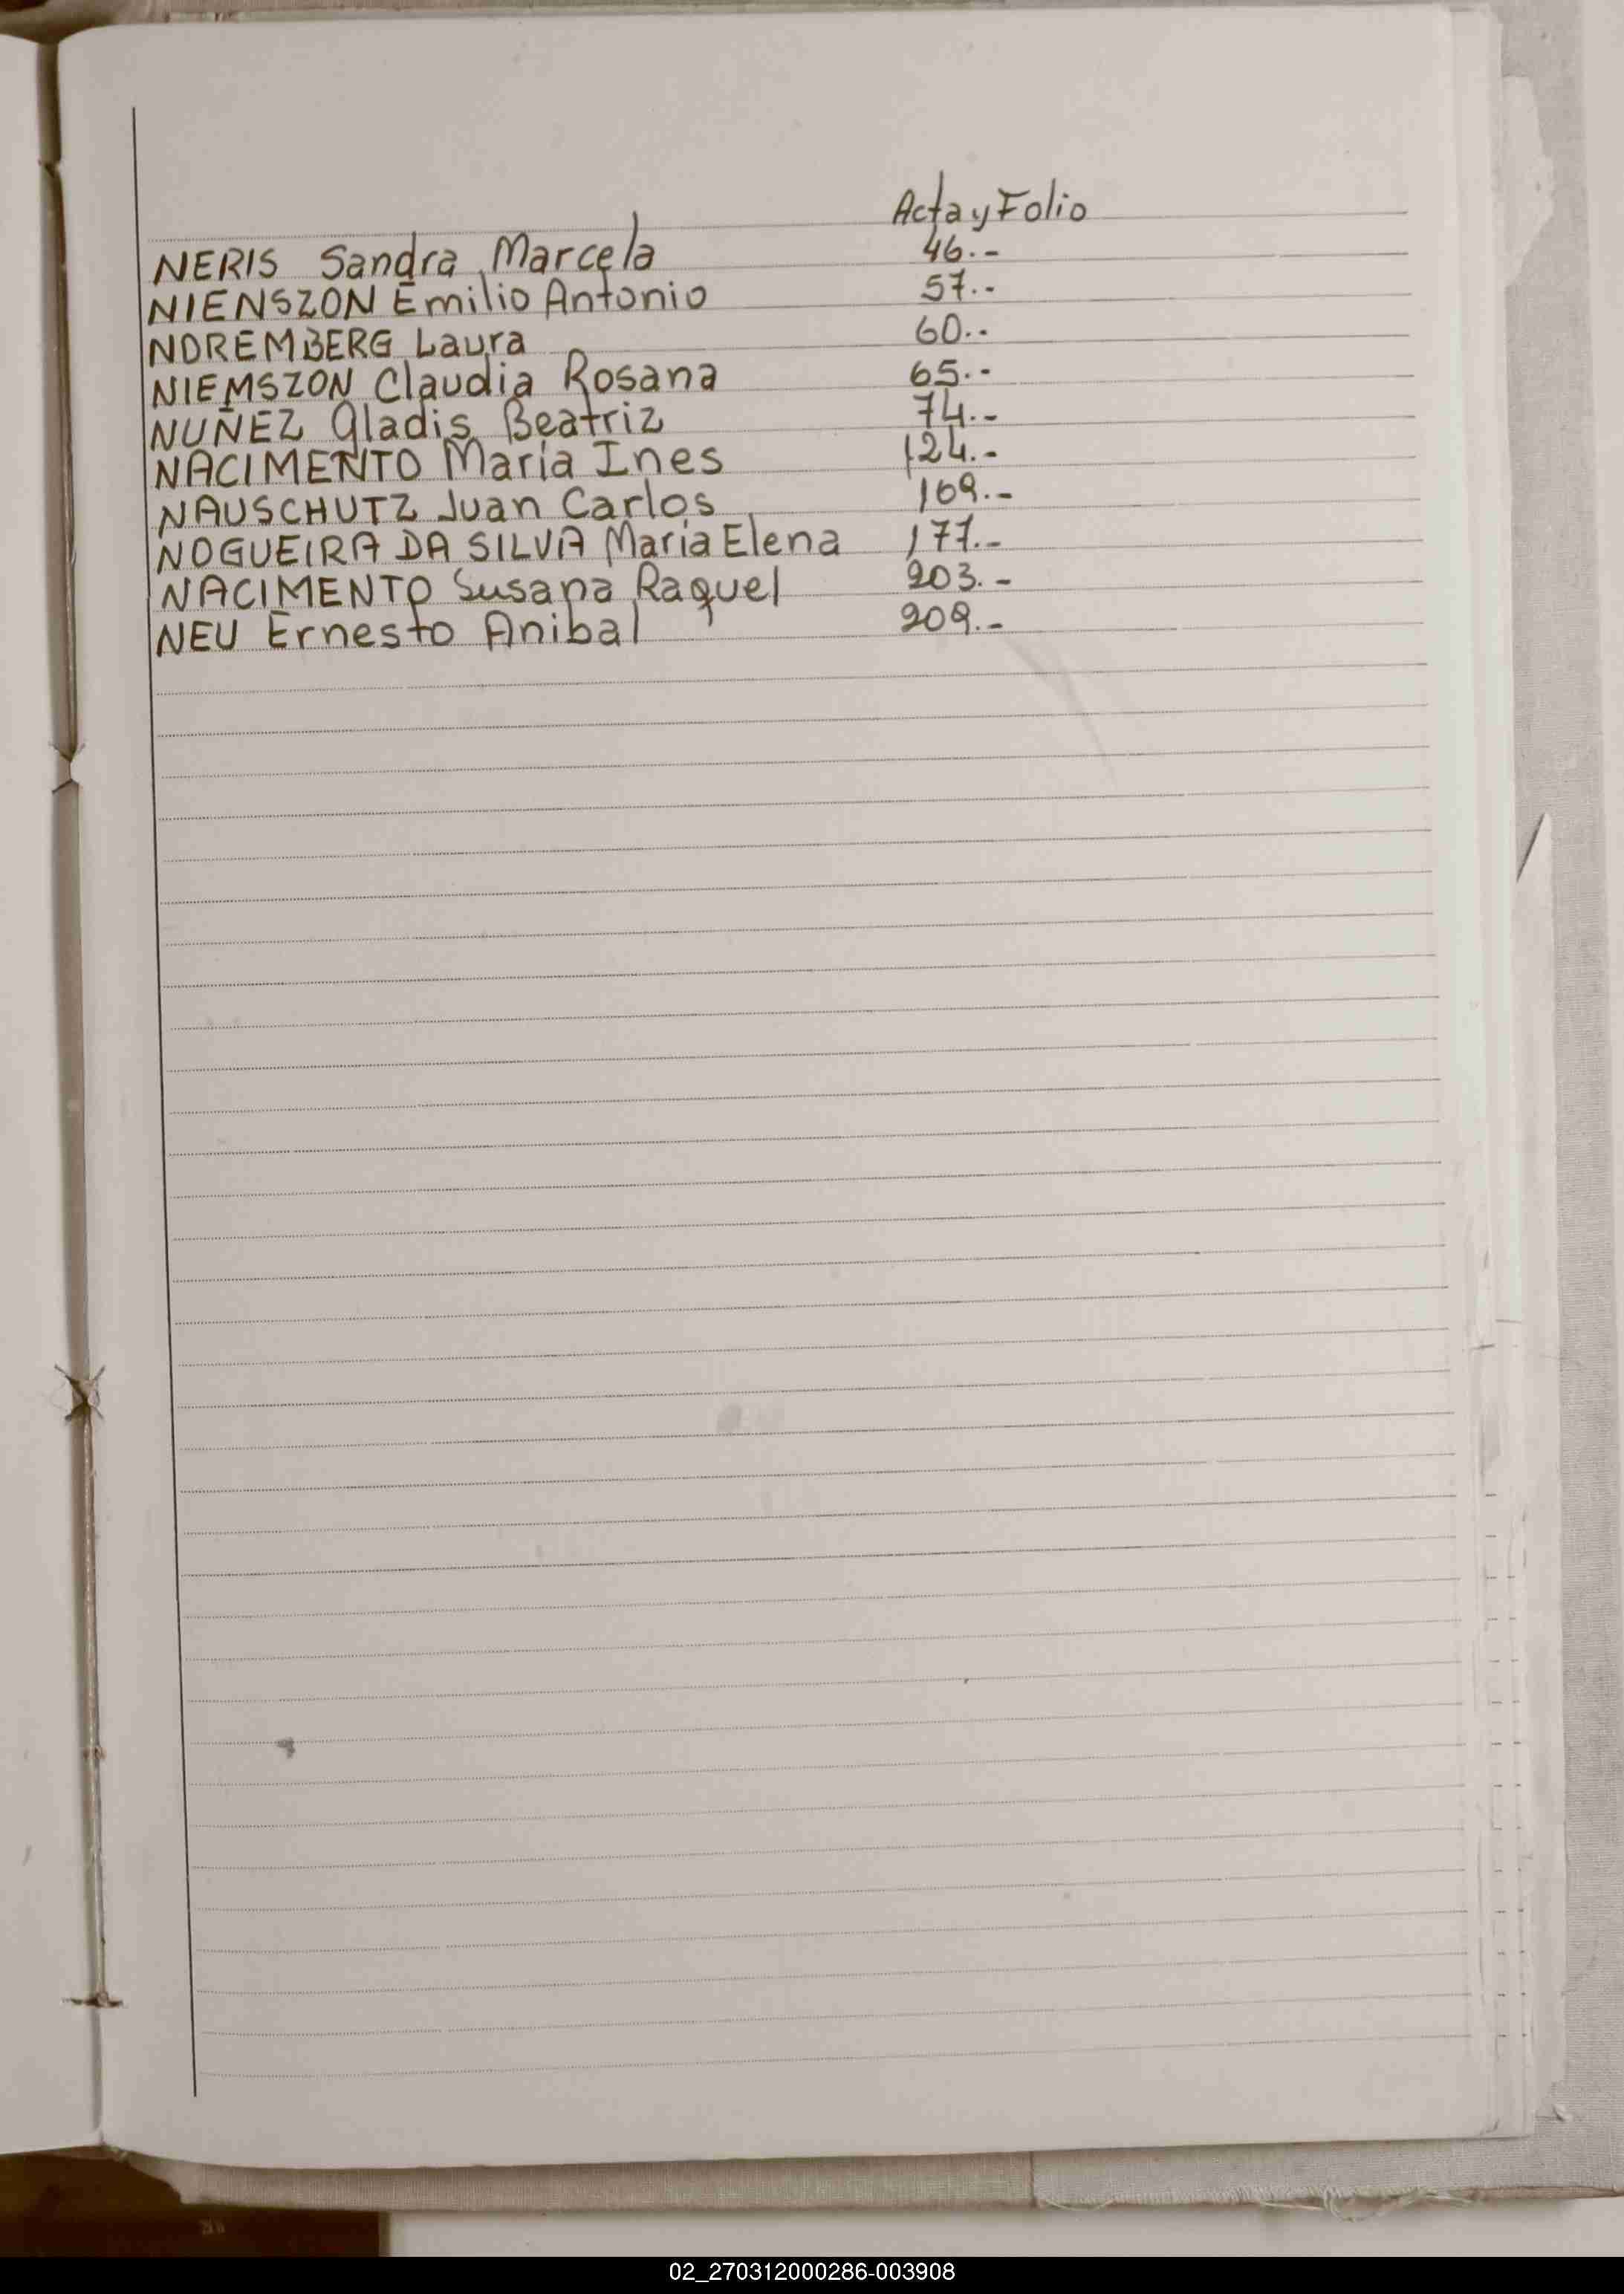 Acta y Folio
NERIS Sandra Marcela 46.-
NIENSZON Emilio Antonio 57.-
NOREMBERG Laura 60.-
NIEMSZON Claudia Rosana 65.-
NUÑEZ Gladis Beatriz 74.-
NACIMENTO María Ines 124.-
NAUSCHUTZ Juan Carlos 169.-
NOGUEIRA DA SILVA María Elena 177.-
NACIMENTO Susana Raquel 203.-
NEU Ernesto Anibal 209.-
02_270312000286-003908